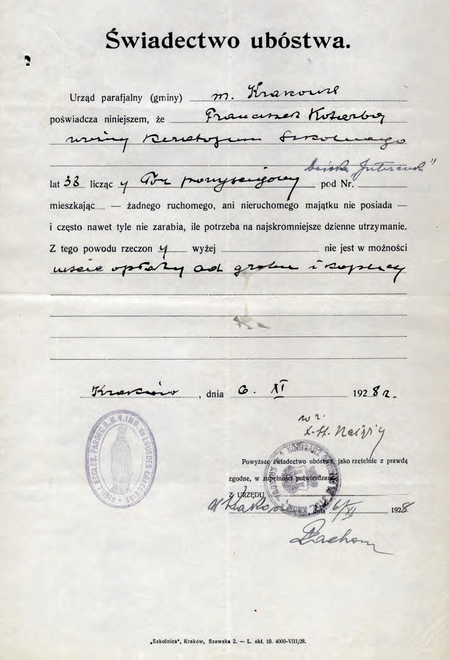 Świadectwo ubóstwa.
Urząd parafjalny (gminy) m. Krakowie
poświadcza niniejszem, że Franciszek Kotarba
woźny Kuratorjum Szkolnego
lat 38 licząc y pod Nr.
mieszkając — żadnego ruchomego, ani nieruchomego majątku nie posiada —
i często nawet tyle nie zarabia, ile potrzeba na najskromniejsze dzienne utrzymanie.
Z tego powodu rzeczon y wyżej nie jest w możności
opłaty od grobu i kaplicy
Kraków, dnia 6. XI 1928 r.
w z.
Powyższe świadectwo ubóstwa, jako rzetelnie z prawdą
zgodne, w zupełności potwierdzam
Z URZĘDU
W Krakowie dnia 6/XI 1928
„Szkolnica", Kraków, Szewska 2. — L. skł. 19. 4000-VIII/28.